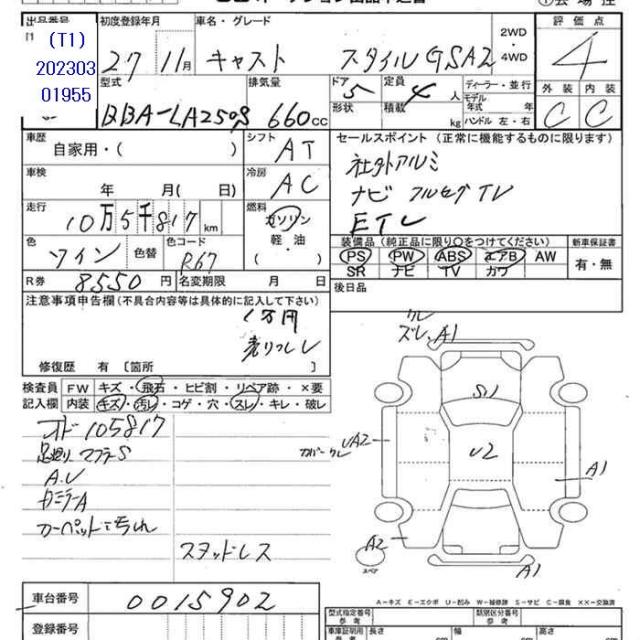 出品番号 初度登録年月 車名・グレード 2WD・4WD 評価点
(T1) 27 11月 キャスト スタイルGSA2 4
202303
01955
型式 排気量 ドア 定員 ディーラー・並行 外装 内装
DBA-LA250S 660cc 5 4人 C C
形状 積載 kg モデル年式 年 ハンドル 左・右
車歴 シフト セールスポイント (正常に機能するものに限ります)
自家用・( ) AT 社外アルミ
車検 冷房
年 月( 日) AC ナビ フルセグTV
走行 燃料 ETC
10万5千817km ガソリン
軽・油
( )
色 色替 色コード 装備品 (純正品に限り○をつけてください) 新車保証書
ワイン R67 PS PW ABS エアB AW 有・無
SR ナビ TV カワ
R券 8550円 名変期限 月 日 後日品
注意事項申告欄(不具合内容等は具体的に記入して下さい)
1万円
売りつし
修復歴 有 [箇所 ]
ズレ、A1
検査員 FW キズ・飛石・ヒビ割・リペア跡・×要
記入欄 内装 キズ・汚レ・コゲ・穴・スレ・キレ・破レ
オド105817
足廻り マフラーS
A.U
カーペット汚れ
スタッドレス
S1
U2
UA2
A1
A2
A1
スペア
A=キズ E=エクボ U=凹み W=補修跡 S=サビ C=腐食 ××=交換済
車台番号 0015902
登録番号
型式指定番号 参考 類別区分番号 参考
車庫証明用 参考 長さ cm 幅 cm 高さ cm